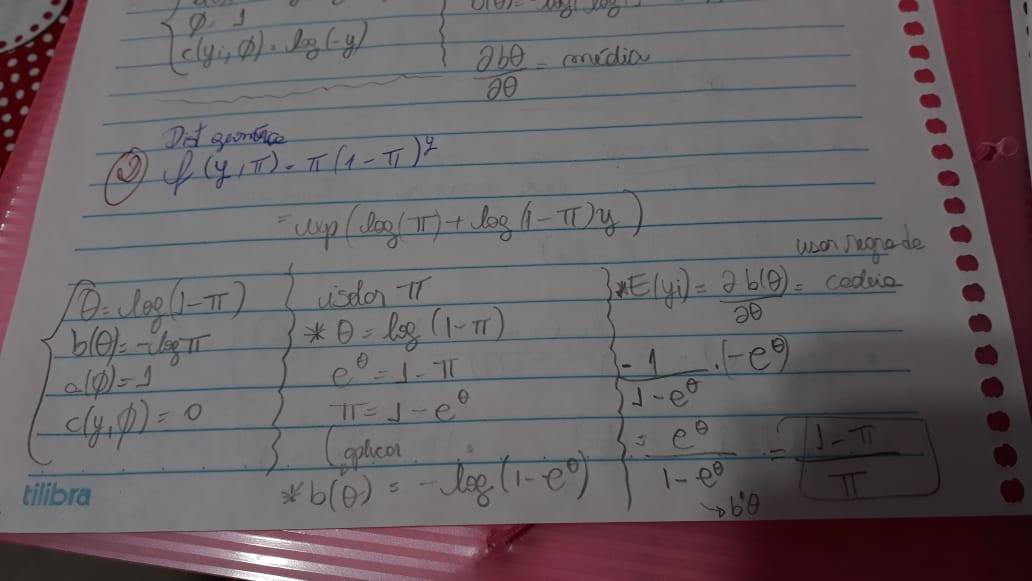 φ = 1
c(yi, φ) = log(-y)
∂bθ/∂θ = média
Dist geométrica
② f(y, π) = π(1-π)^y
= exp(log(π) + log(1-π)y)
θ = log(1-π)
b(θ) = -logπ
a(φ) = 1
c(y, φ) = 0
isolar π
* θ = log(1-π)
e^θ = 1-π
π = 1-e^θ
(aplicar
* b(θ) = -log(1-e^θ)
usar regra de
* E(yi) = ∂b(θ)/∂θ = cadeia
-1/(1-e^θ) · (-e^θ)
= e^θ/(1-e^θ) = (1-π)/π
→ b'θ
tilibra